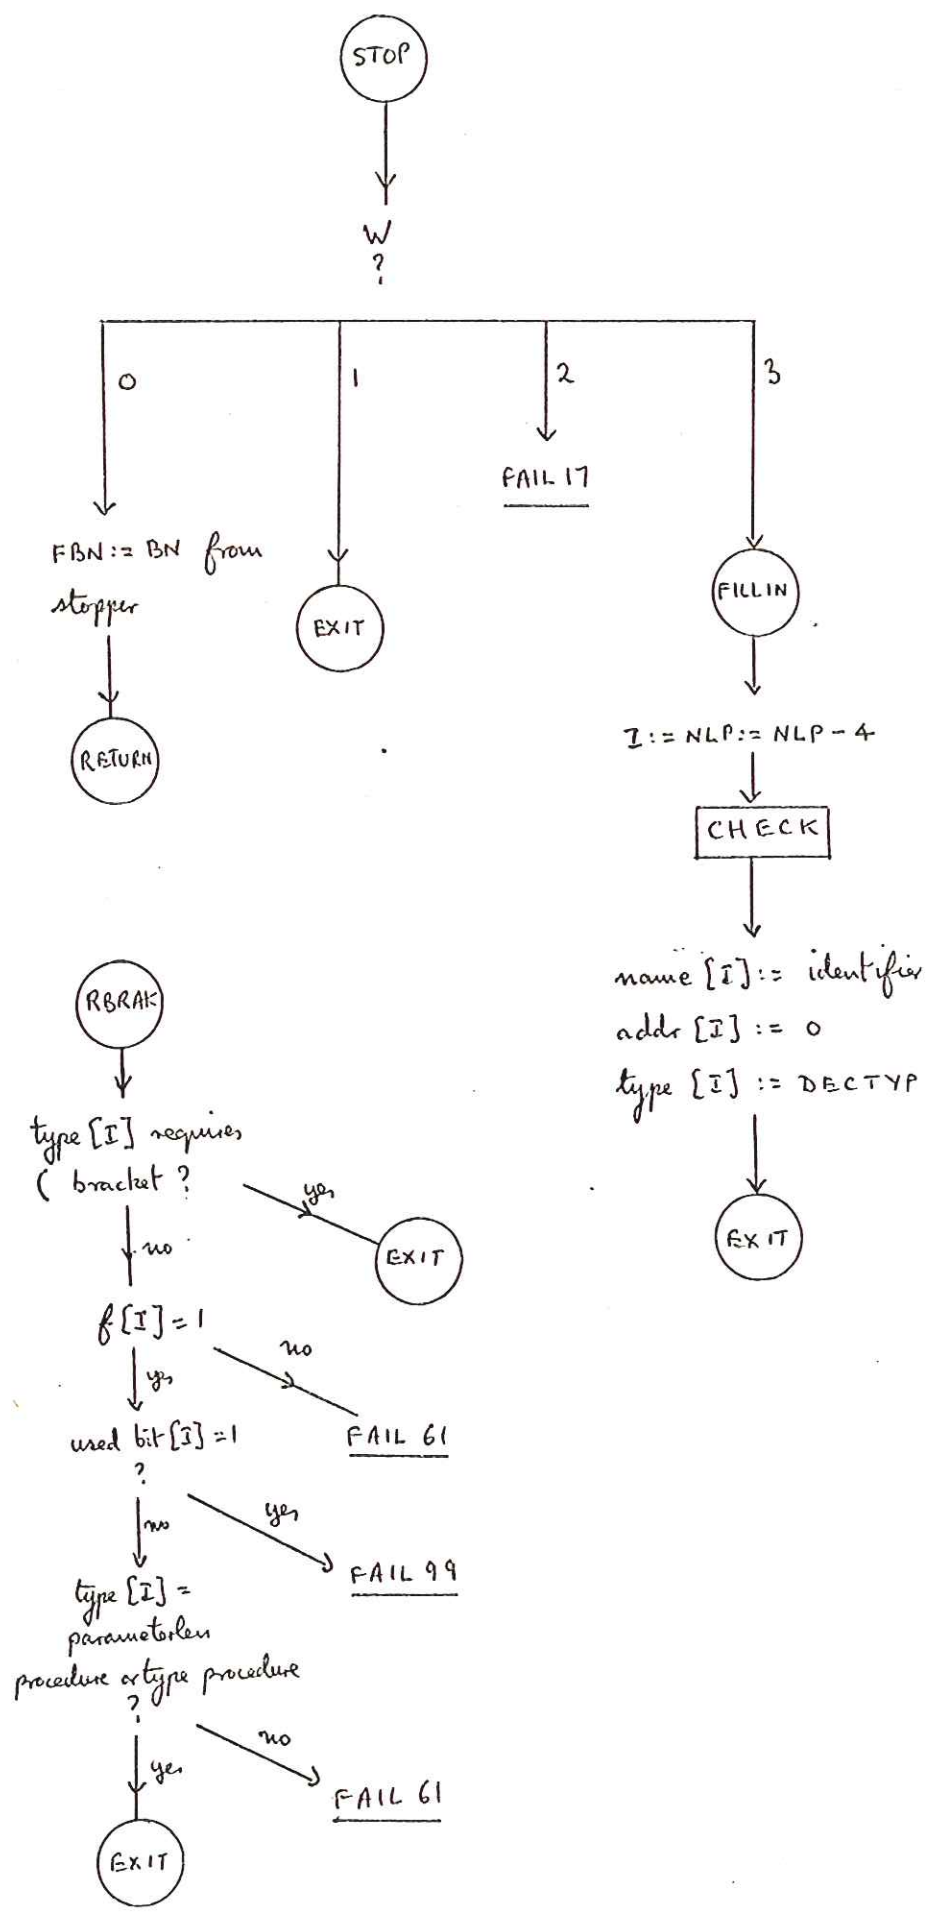 STOP
W
?
0
1
2
3
FAIL 17
FBN := BN from
stopper
RETURN
EXIT
FILLIN
I := NLP := NLP - 4
CHECK
name [I] := identifier
addr [I] := 0
type [I] := DECTYP
EXIT
RBRAK
type [I] requires
( bracket ?
yes
EXIT
no
f [I] = 1
no
yes
FAIL 61
used bit [I] = 1
?
yes
no
FAIL 99
type [I] =
parameterless
procedure or type procedure
?
no
yes
FAIL 61
EXIT